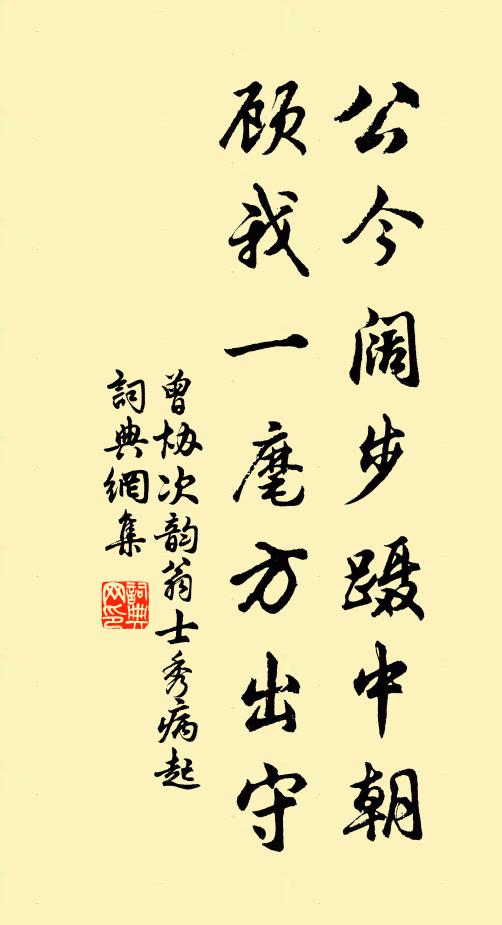 公今阔步蹑中朝
顾我一麾方出守
曾协次韵翁士秀病起
詞典網集
詞典網印